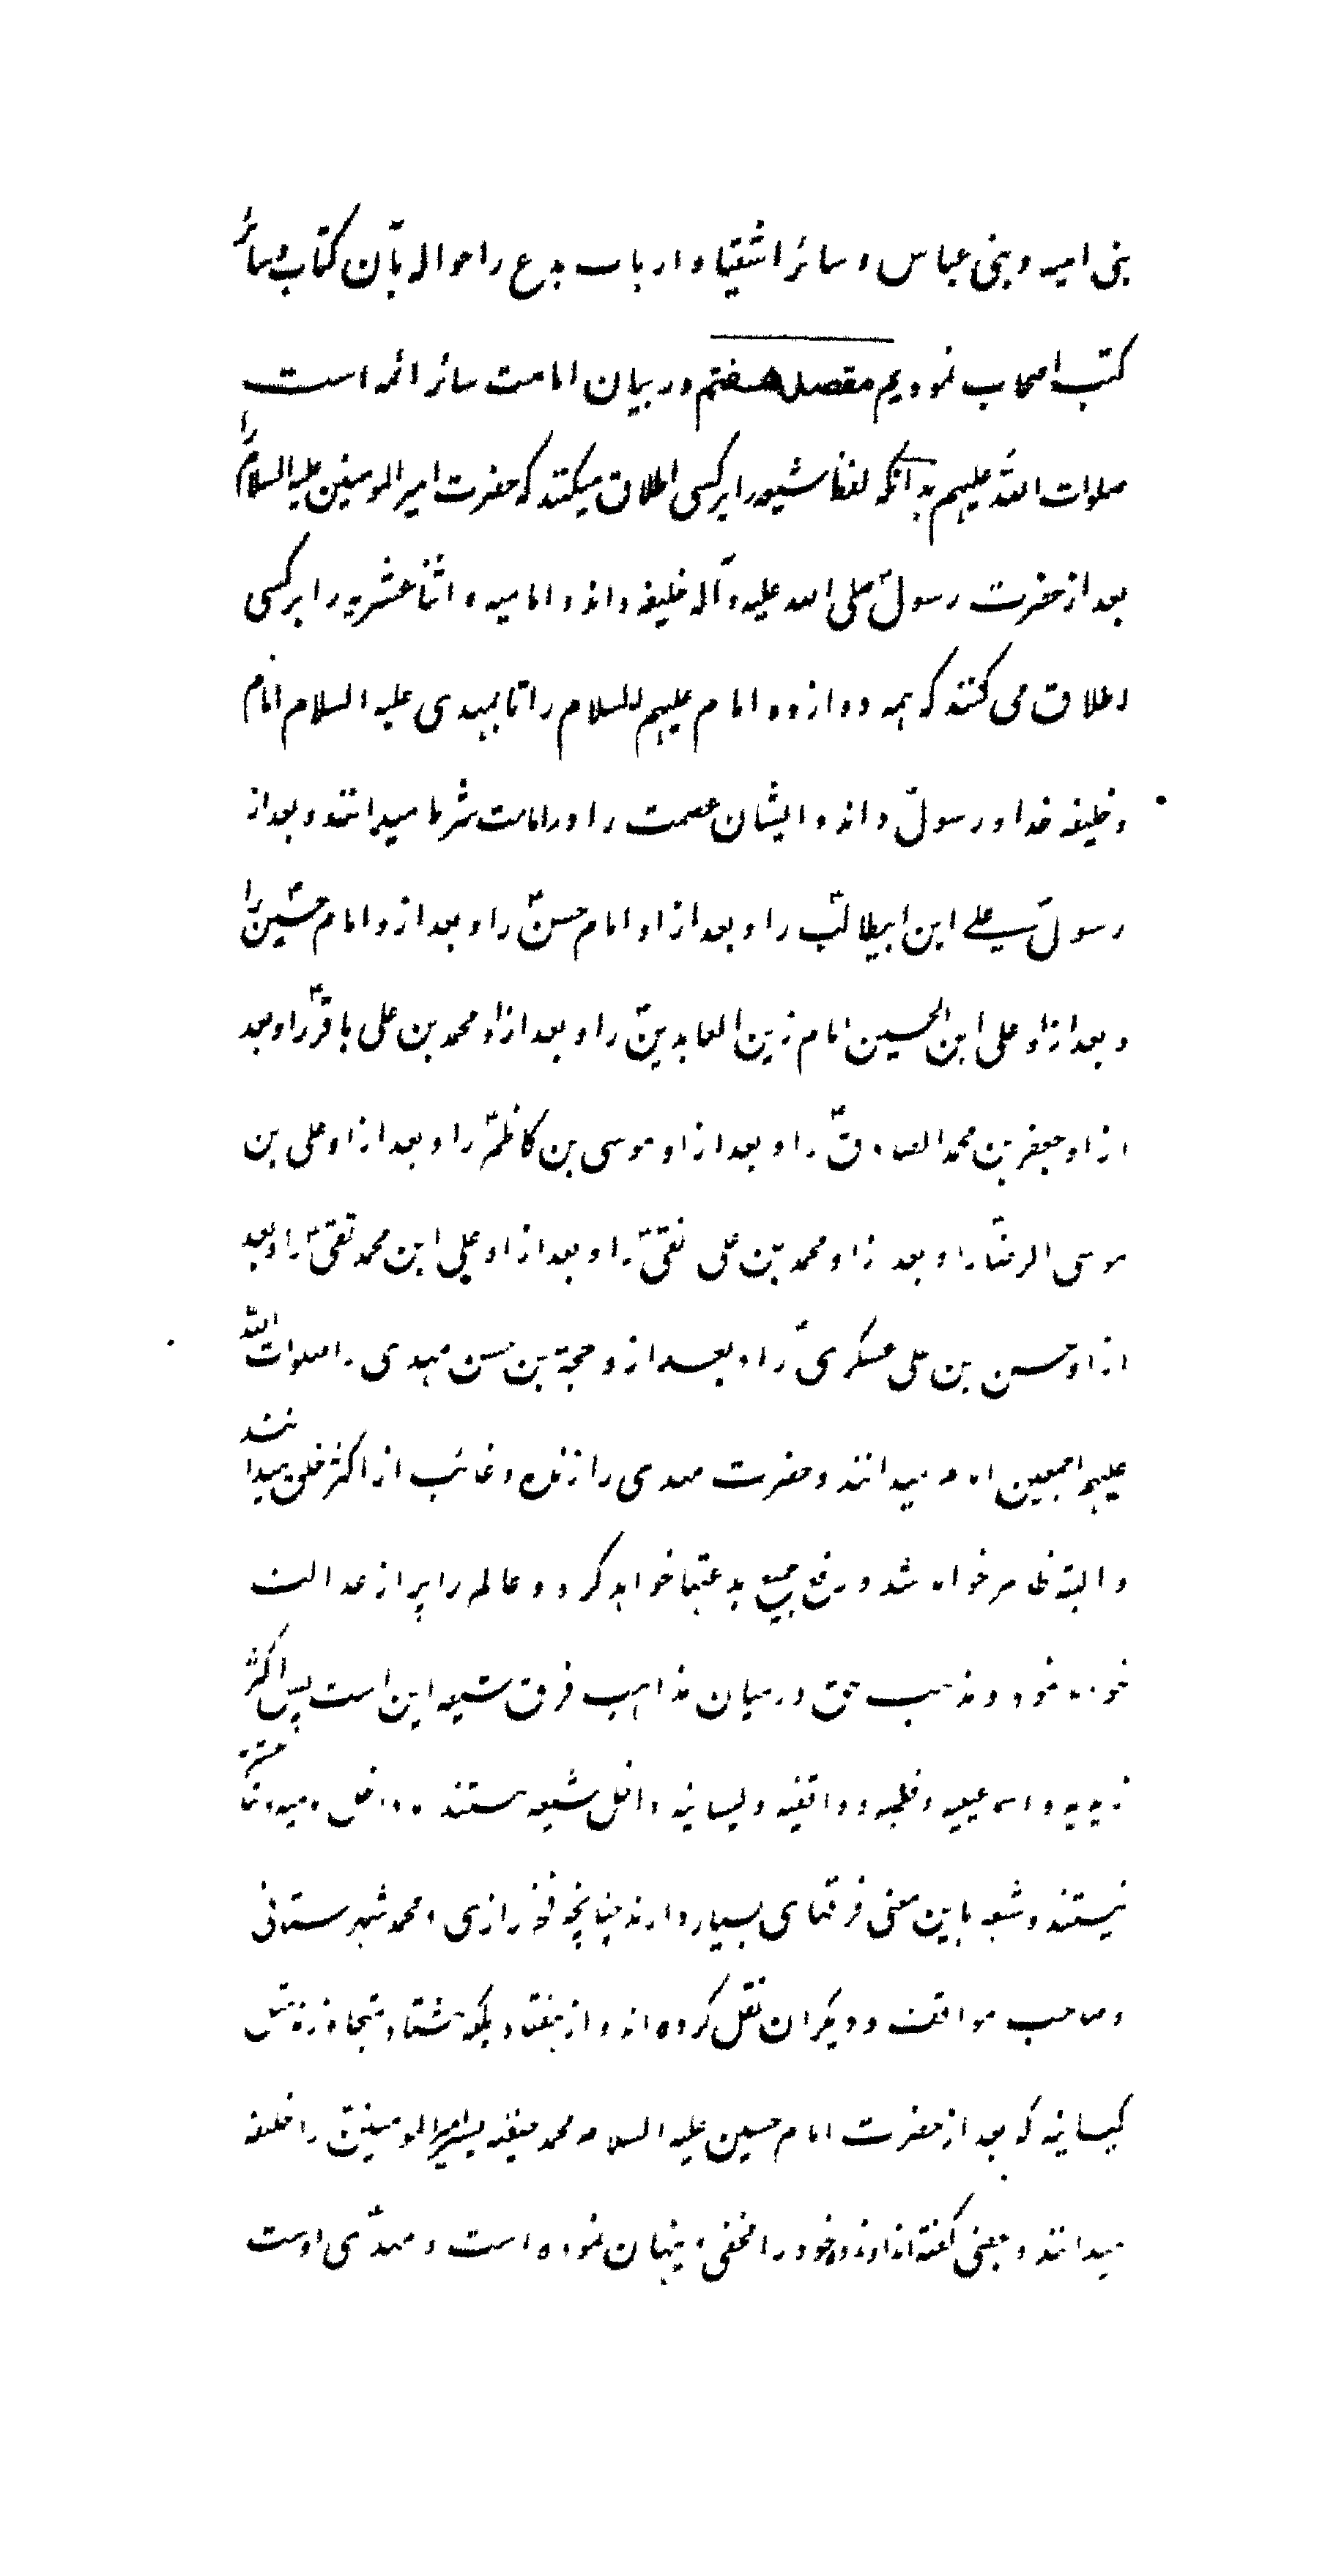 بنی امیه و بنی عباس و سائر اشقیا و ارباب بدع را حواله بآن کتاب و سائر
کتب اصحاب نمودیم مقصد هفتم در بیان امامت سائر ائمه است
صلوات الله علیهم بدانکه لفظ شیعه را بر کسی اطلاق میکنند که حضرت امیر المومنین علیه السلام را
بعد از حضرت رسول صلی الله علیه و آله خلیفه داند و امامیه و اثنا عشریه را بر کسی
اطلاق می کنند که همه دوازده امام علیهم السلام را تا مهدی علیه السلام امام
و خلیفه خدا و رسول داند و ایشان عصمت را در امامت شرط میدانند و بعد از
رسول علی ابن ابیطالب را و بعد از او امام حسن را و بعد ازو امام حسین را
و بعد از او علی ابن الحسین امام زین العابدین را و بعد از او محمد بن علی باقر را و بعد
از او جعفر بن محمد الصادق را و بعد از او موسی بن کاظم را و بعد از او علی بن
موسی الرضا را و بعد از او محمد بن علی نقی را و بعد از او علی ابن محمد تقی را و بعد
از او حسن بن علی عسکری را و بعد ازو حجة بن حسن مهدی را صلوات الله
علیهم اجمعین امام میدانند و حضرت مهدی را زنده و غائب از اکثر خلق میدانند
و البته ظاهر خواهد شد و رفع جمیع بدعتها خواهد کرد و عالم را پر از عدالت
خواهد نمود و مذهب حق در میان مذاهب فرق شیعه این است پس اکثر
زیدیه و اسمعیلیه و فطحیه و واقفیه و کیسانیه داخل شیعه هستند و داخل امامیه اثنا عشریه
نیستند و شیعه باین معنی فرقهای بسیار دارند چنانچه فخر رازی و محمد شهرستانی
و صاحب مواقف و دیگران نقل کرده اند و از هفتاد بلکه هشتاد متجاوزند مثل
کیسانیه که بعد از حضرت امام حسین علیه السلام محمد حنفیه پسر امیر المومنین را خلیفه
میدانند و بعضی گفته اند او زنده و خود را مخفی و پنهان نموده است و مهدی اوست